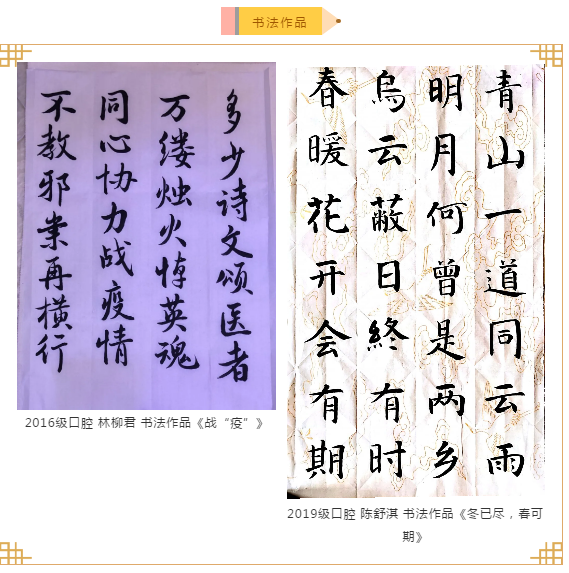 书法作品
多少诗文颂医者
万缕烛火悼英魂
同心协力战疫情
不教邪祟再横行
2016级口腔 林柳君 书法作品《战“疫”》
青山一道同云雨
明月何曾是两乡
烏云蔽日終有时
春暖花开会有期
2019级口腔 陈舒淇 书法作品《冬已尽，春可
期》